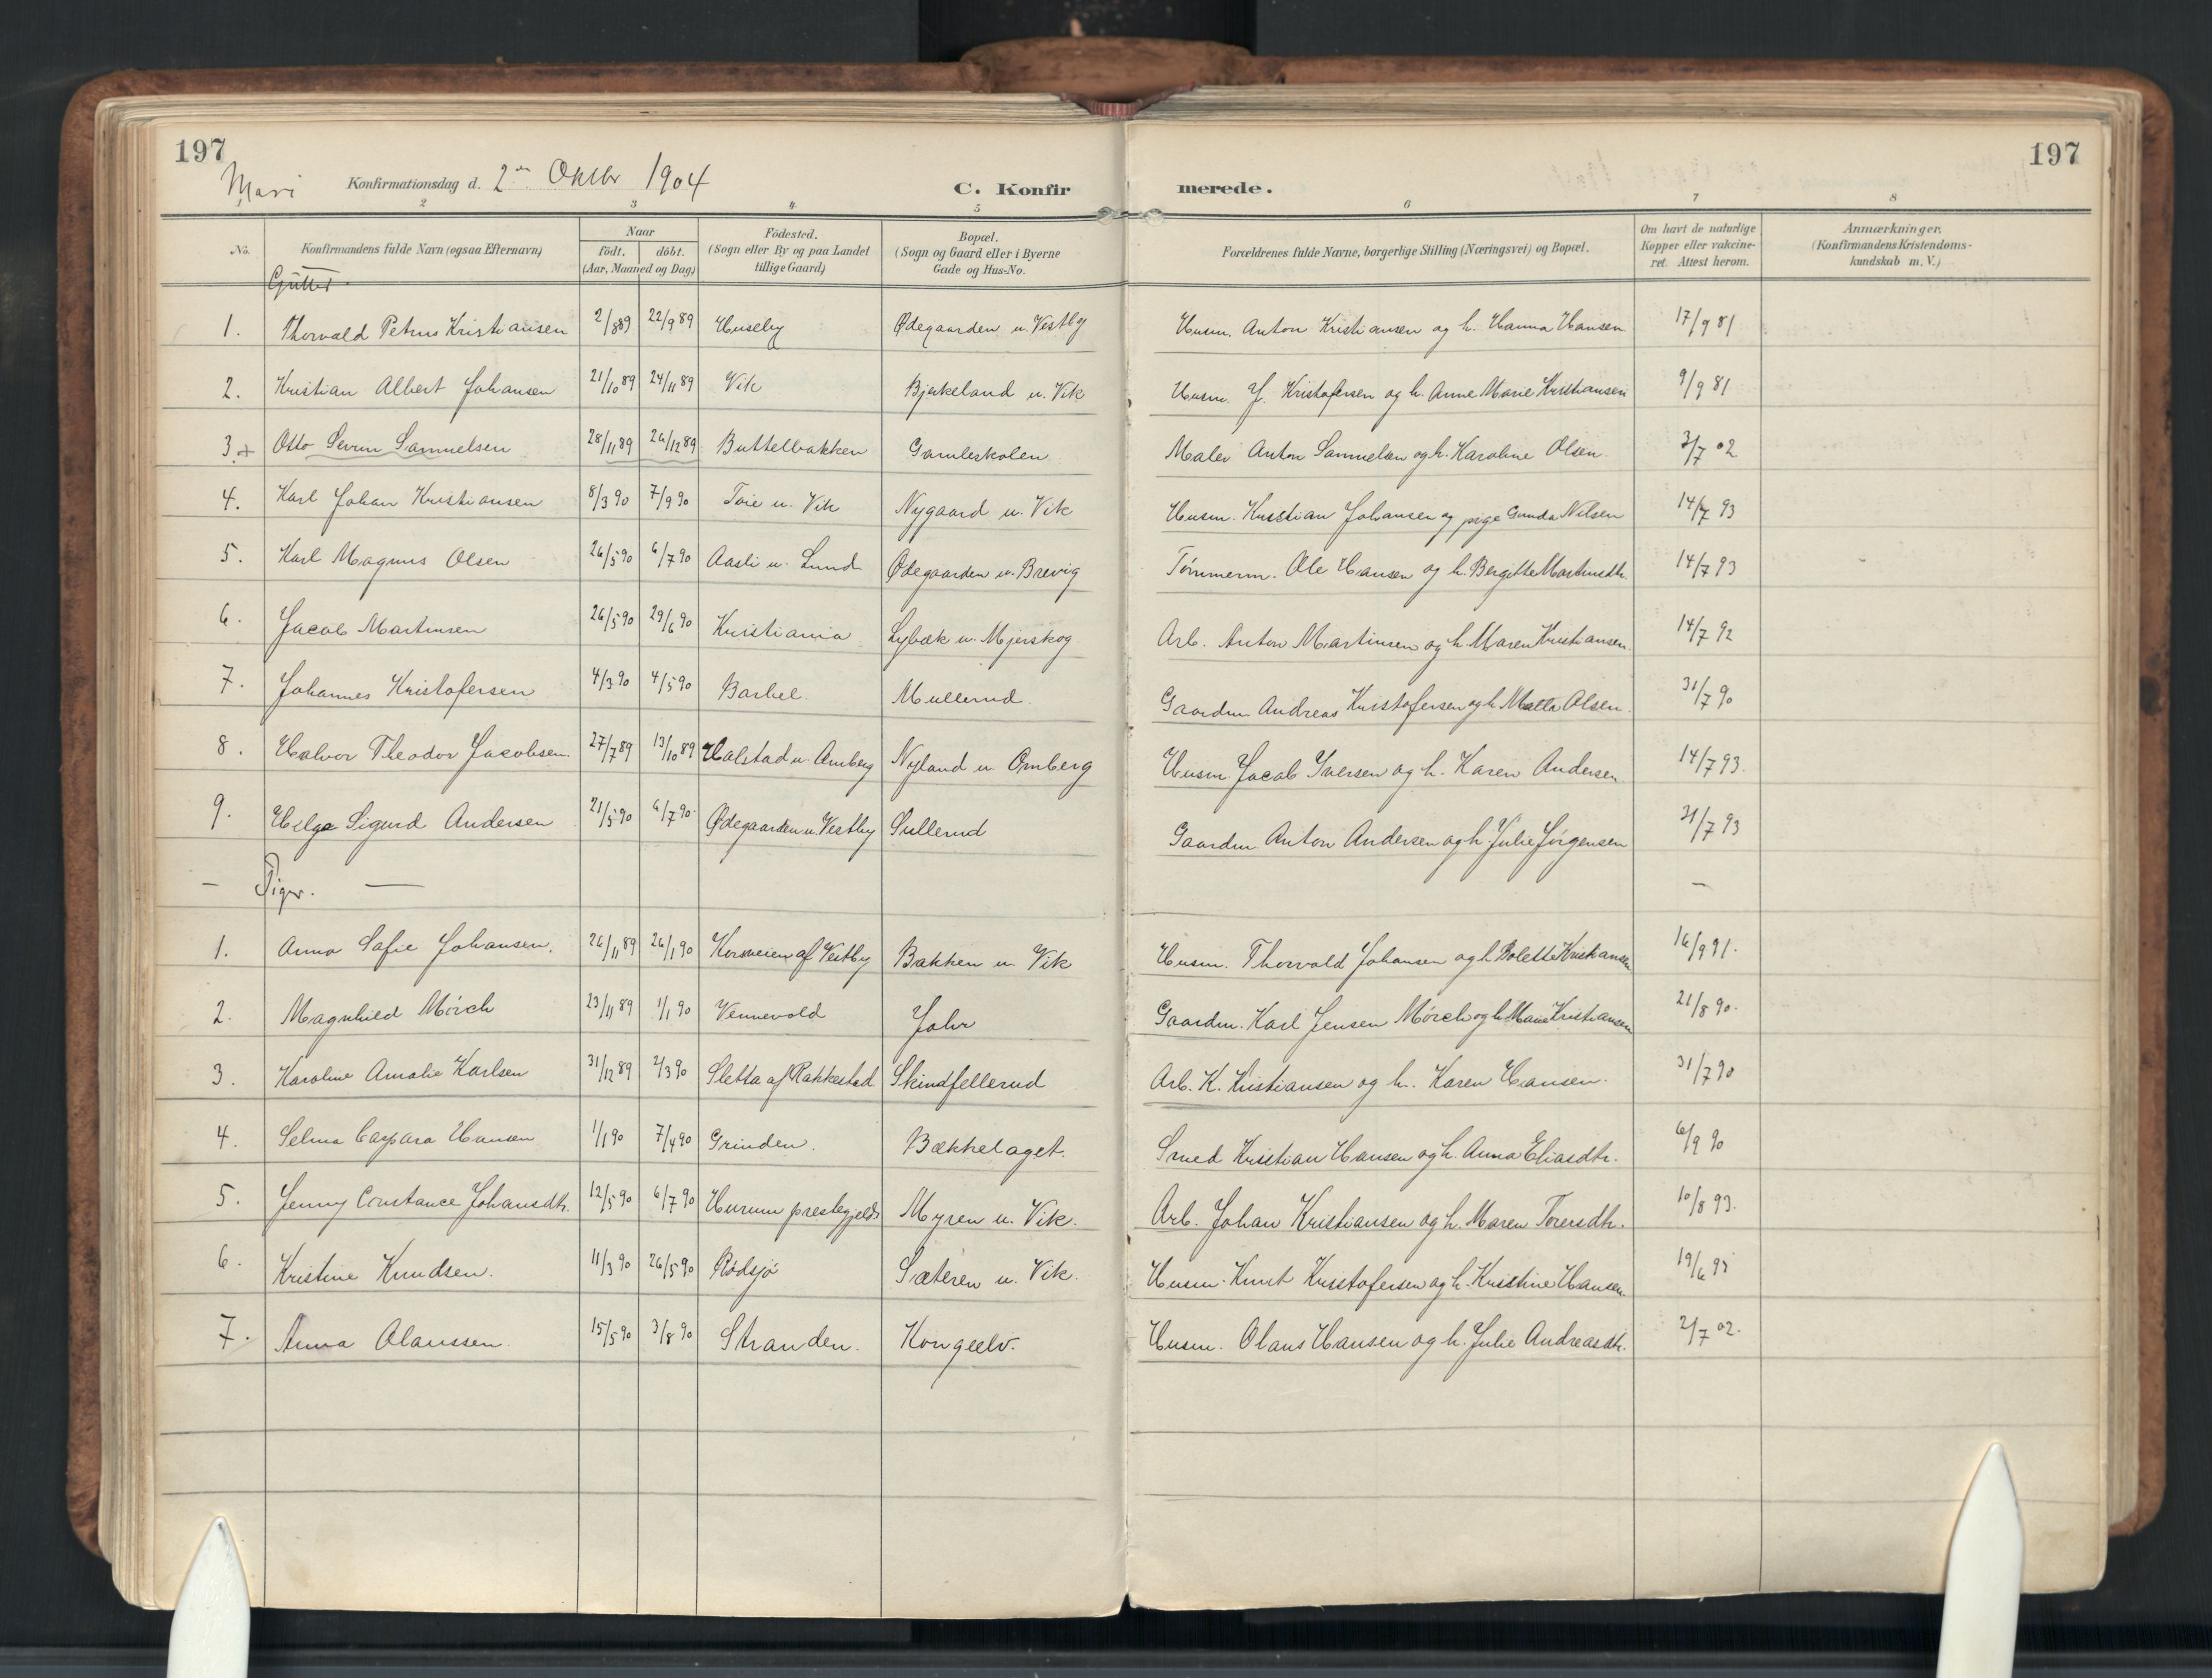 197
197
Mari Konfirmationsdag d. 2den Oktbr 1904 C. Konfir merede.
2 3 4 5 6 7 8
No. Konfirmandens fulde Navn (ogsaa Efternavn) Naar födt. döbt. (Aar, Maaned og Dag) Födested. (Sogn eller By og paa Landet tillige Gaard) Bopæl. (Sogn og Gaard eller i Byerne Gade og Hus-No. Forældrenes fulde Navne, borgerlige Stilling (Næringsvei) og Bopæl. Om havt de naturlige Kopper eller vakcineret. Attest herom. Anmærkninger. (Konfirmandens Kristendomskundskab m. V.)
Gutter
1. Thorvald Petrus Kristiansen 2/8 89 22/9 89 Huseby Ødegaarden u. Vestby Husm. Anton Kristiansen og h. Hanna Hansen 17/9 81
2. Kristian Albert Johansen 21/10 89 24/11 89 Vik Bjerkeland u. Vik Husm. J. Kristofersen og h. Anne Marie Kristiansen 9/9 81
3. + Otto Severin Samuelsen 28/11 89 26/12 89 Buttelbakken Gamleskolen Maler Anton Samuelsen og h. Karoline Olsen 2/7 02
4. Karl Johan Kristiansen 8/3 90 7/9 90 Toie u. Vik Nygaard u. Vik Husm. Kristian Johansen og pige Gunda Nilsen 14/7 93
5. Karl Magnus Olsen 26/5 90 6/7 90 Aasli u. Lund Ødegaarden u. Brevig Tømmerm. Ole Hansen og h. Bergitte Martinsdtr. 14/7 93
6. Jacob Martinsen 26/5 90 29/6 90 Kristiania Lybæk u. Mjerskog Arb. Anton Martinsen og h. Maren Kristiansen. 14/7 92
7. Johannes Kristofersen 4/3 90 4/5 90 Barhel. Mullerud Gaardm. Andreas Kristofersen og h. Matta Olsen. 31/7 90
8. Halvor Theodor Jacobsen. 27/7 89 13/10 89 Halstad u. Omberg Nyland u. Omberg Husm. Jacob Iversen og h. Karen Andersen 14/7 93.
9. Helge Sigurd Andersen 21/5 90 6/7 90. Ødegaarden u. Vestby Sullerud Gaardm. Anton Andersen og h. Julie Jørgensen 31/7 93
— Piger. — —
1. Anna Sofie Johansen. 26/11 89 26/1 90 Korsveien af Vestby Bakken u. Vik Husm. Thorvald Johansen og h. Bolette Kristiansen 16/9 91.
2. Magnhild Mörch 23/11 89 1/1 90 Vennevold Johr Gaardm. Karl Jensen Mörch og h. Marie Kristiansen 21/8 90.
3. Karoline Amalie Karlsen 31/12 89 2/3 90 Sletta af Rakkestad Skindfellerud Arb. K. Kristiansen og h. Karen Hansen. 31/7 90
4. Selma Caspara Hansen 1/1 90 7/4 90 Grinden. Bækkelaget. Smed Kristian Hansen og h. Anna Eliasdtr. 6/9 90
5. Jenny Constance Johansdtr. 12/5 90 6/7 90 Hurum prestegjeld Myren u. Vik. Arb. Johan Kristiansen og h. Maren Torersdtr. 10/8 93.
6. Kristine Knudsen. 11/3 90 26/5 90 Rødsjø Sæteren u. Vik. Husm. Knut Kristofersen og h. Kristine Hansen. 19/6 95
7. Anna Olaussen 15/5 90 3/8 90 Stranden. Kongeelv. Husm. Olaus Hansen og h. Julie Andreasdtr. 2/7 02.